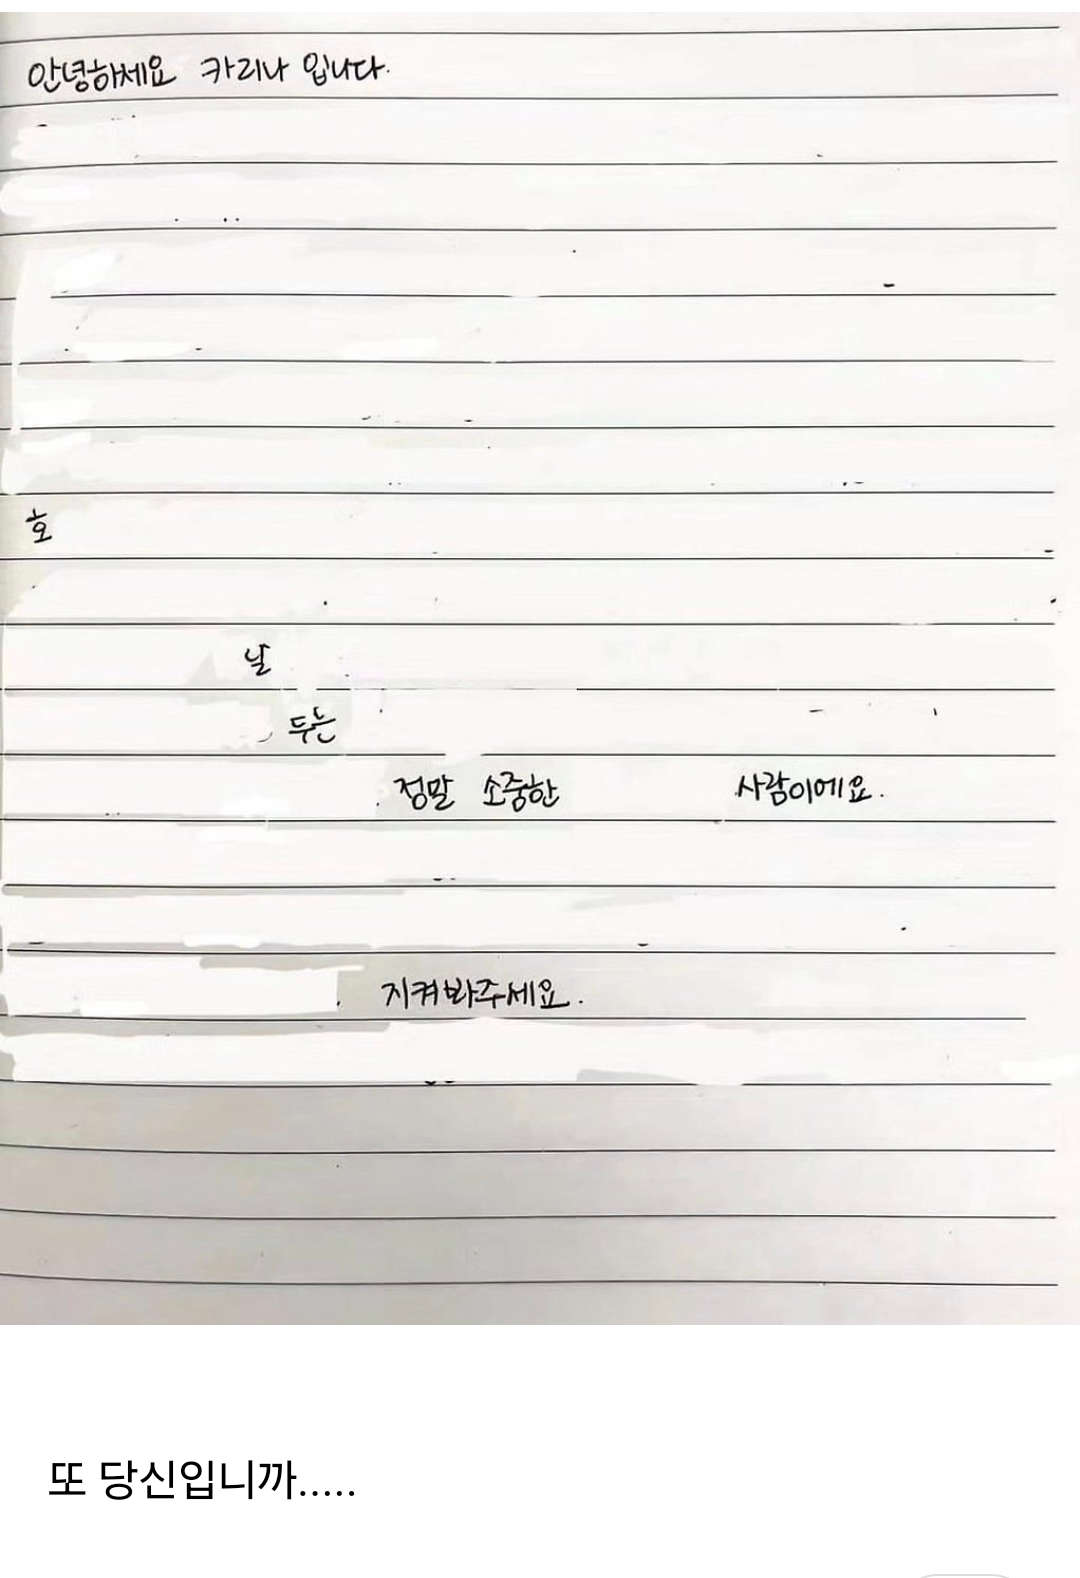 안녕하세요 카리나 입니다.
호
날
두는
정말 소중한 사람이에요.
지켜봐주세요.
또 당신입니까.....